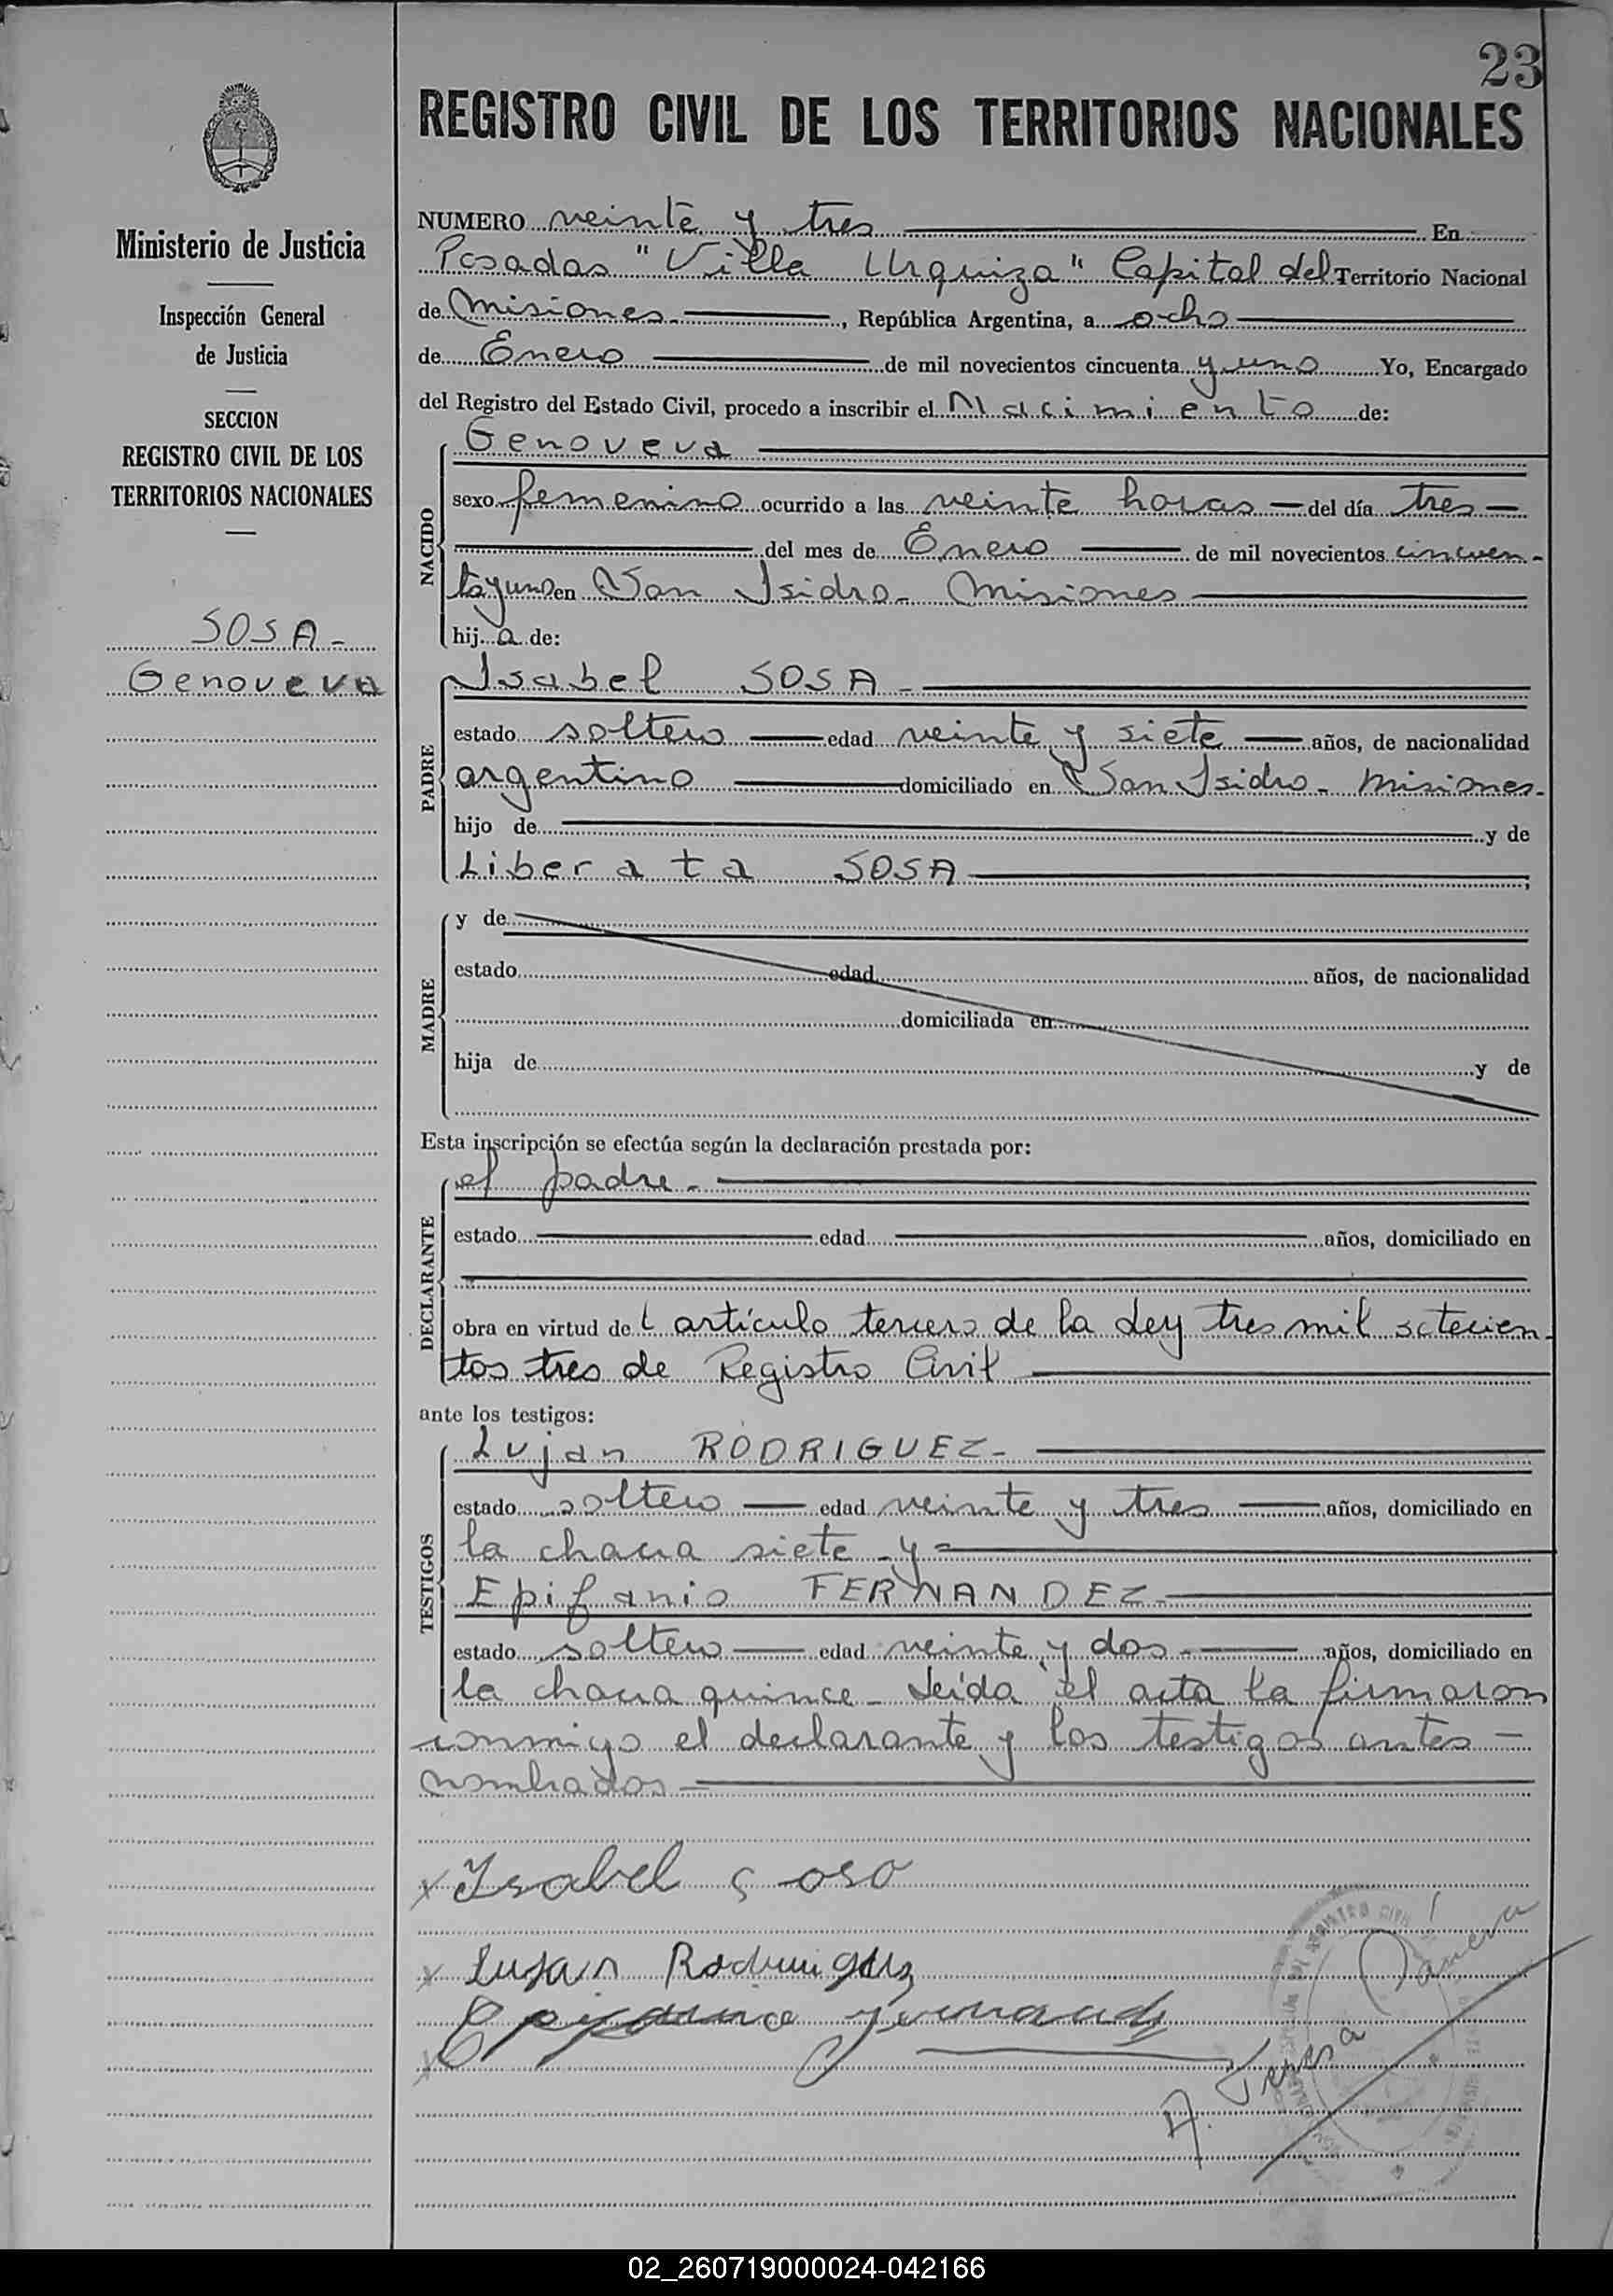 23
REGISTRO CIVIL DE LOS TERRITORIOS NACIONALES
Ministerio de Justicia
Inspección General
de Justicia
SECCION
REGISTRO CIVIL DE LOS
TERRITORIOS NACIONALES
SOSA -
Genoveva
NUMERO veinte y tres En
Posadas "Villa Urquiza" Capital del Territorio Nacional
de Misiones, República Argentina, a ocho
de Enero de mil novecientos cincuenta y uno Yo, Encargado
del Registro del Estado Civil, procedo a inscribir el Nacimiento de:
Genoveva
NACIDO
sexo femenino ocurrido a las veinte horas — del día tres —
del mes de Enero de mil novecientos cincuen-
tayuno en San Isidro - Misiones
hija de:
Isabel SOSA -
PADRE
estado soltero edad veinte y siete años, de nacionalidad
argentino domiciliado en San Isidro - Misiones.
hijo de y de
Liberata SOSA
MADRE
y de
estado edad años, de nacionalidad
domiciliada en
hija de y de
Esta inscripción se efectúa según la declaración prestada por:
el padre -
DECLARANTE
estado edad años, domiciliado en
obra en virtud del artículo tercero de la Ley tres mil setecien-
tos tres de Registro Civil
ante los testigos:
Lujan RODRIGUEZ -
TESTIGOS
estado soltero edad veinte y tres años, domiciliado en
la chacra siete - y =
Epifanio FERNANDEZ -
estado soltero edad veinte y dos - años, domiciliado en
la chacra quince - Leída el acta la firmaron
conmigo el declarante y los testigos antes -
nombrados -
x Isabel Soso
x Lujan Rodriguez
x Epifanio Fernandez
A. Teresa
02_260719000024-042166